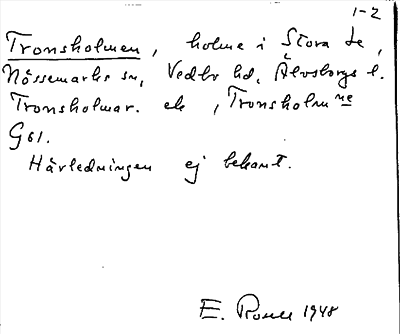 1-2
Tronsholmen, holme i Stora Le,
Nössemarks sn, Vedbo hd, Älvsborgs l.
Tronsholmar. ek, Tronsholmne
G61.
Härledningen ej bekant.
E. 1948